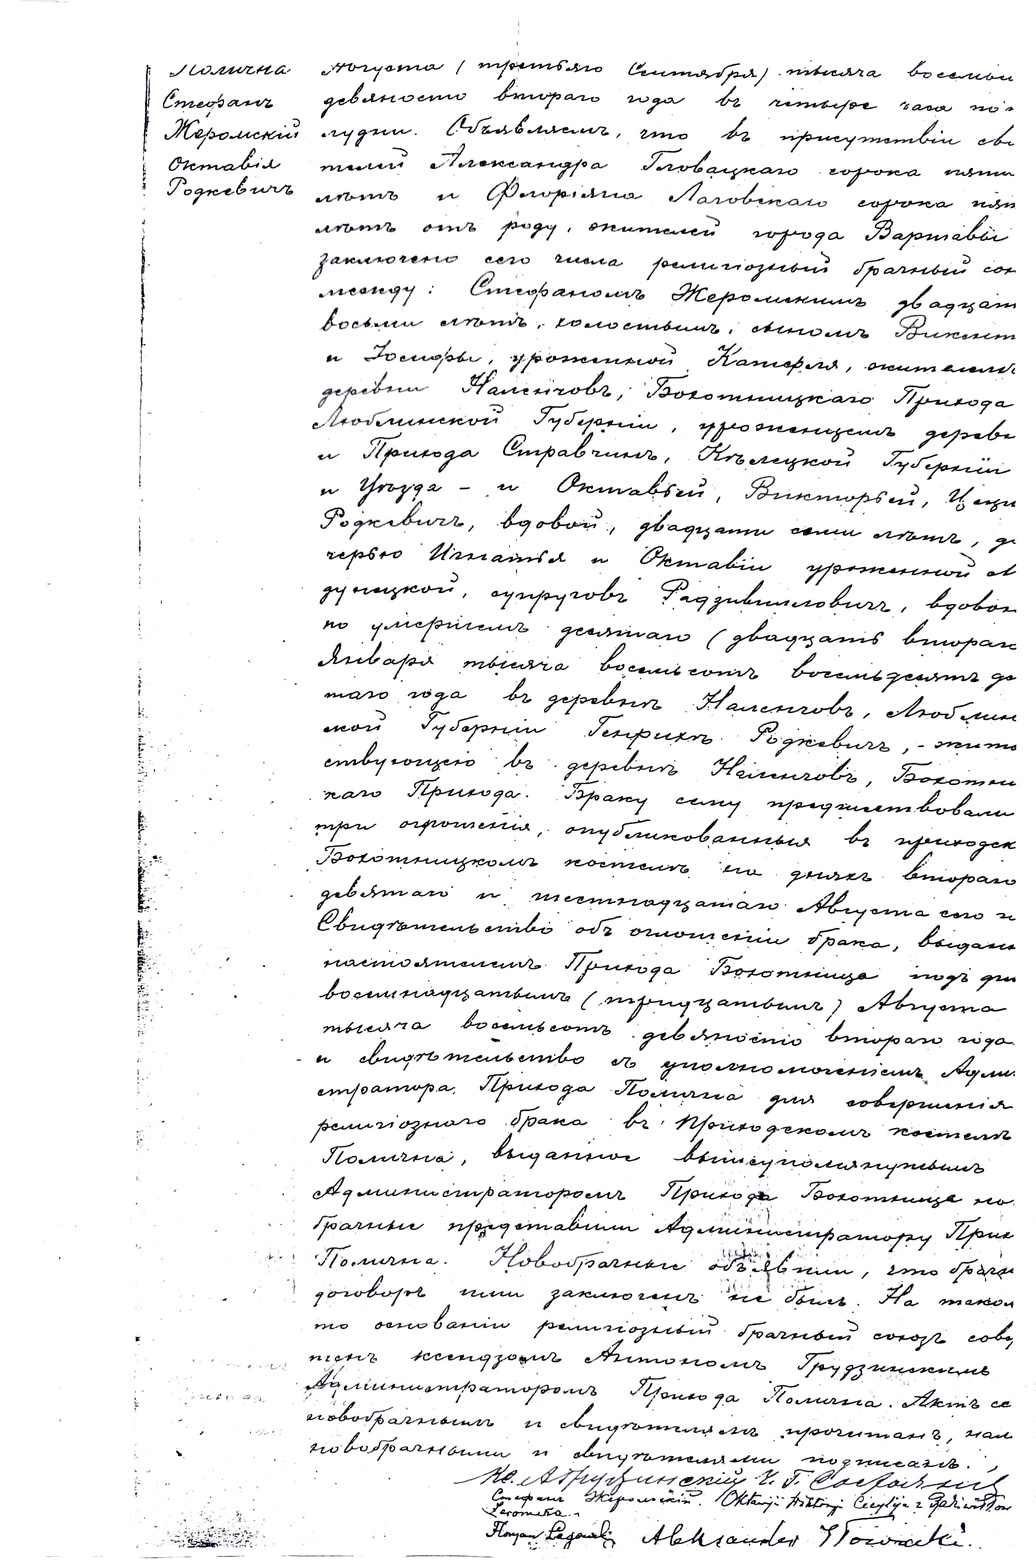 Полична
Стефанъ
Жеромскій
Октавія
Родкевичъ
Августа (третьяго Сентября) тысяча восемьсо
девяносто втораго года въ четыре часа по
лудни. Объявляемъ, что въ присутствіи сви
телей Александра Гловацкаго сорока пяти
лѣтъ и Флоріяна Лаговскаго сорока
лѣтъ отъ роду, жителей города Варшавы
заключено сего числа религіозный брачный со
между: Стефаномъ Жеромскимъ двадцат
восьми лѣтъ, холостымъ, сыномъ Викент
и Іосифы, урожденной Катерля,
деревни Наленчовъ, Бохотницкаго Прихода
Люблинской Губерніи, уроженцемъ дерев
и Прихода Стравчинъ, Кѣлецкой Губерніи
и Уѣзда – и Октавіей, Викторіей, Цеци
Родкевичъ, вдовой, двадцати семи лѣтъ, до
черью Игнатія и Октавіи урожденной
дунецкой, супруговъ Радзивилловичъ, вдовою
по умершемъ десятаго (двадцать втораго
Января тысяча восемьсотъ восемьдесятъ де
таго года въ деревнѣ Наленчовъ, Люблин
ской Губерніи Генрихѣ Родкевичъ, – жите
ствующею въ деревнѣ Наленчовъ, Бохотни
каго Прихода. Браку сему предшествовали
три оглошенія, опубликованныя въ приходск
Бохотницкомъ костелѣ въ дняхъ втораго
девятаго и шестнадцатаго Августа сего г
Свидѣтельство объ оглошеніи брака, выдано
настоятелемъ Прихода Бохотница подъ дн
восемнадцатымъ (тридцатымъ) Августа
тысяча восемьсотъ девяносто втораго года
и свидѣтельство съ уполномоченіемъ Адми
стратора Прихода Полична для совершенія
религіознаго брака въ Приходскомъ костелѣ
Полична, выданное вышеупомянутымъ
Администраторомъ Прихода Бохотница но
брачные представили Администратору Прих
Полична. Новобрачные объявили, что брачн
договоръ ими заключенъ не былъ. На таком
то основаніи религіозный брачный союзъ сове
шенъ ксендзомъ Антономъ Грудзинскимъ
Администраторомъ Прихода Полична. Актъ се
новобрачнымъ и свидѣтелямъ прочитанъ, нам
новобрачными и свидѣтелями подписанъ.
Кс. А Грудзинскій
Стефанъ Жеромскій. Oktawji Wiktorji Cecylja z Radziwiłłow
Żeromska
Floryan Łagowski Aleksander Głowacki.